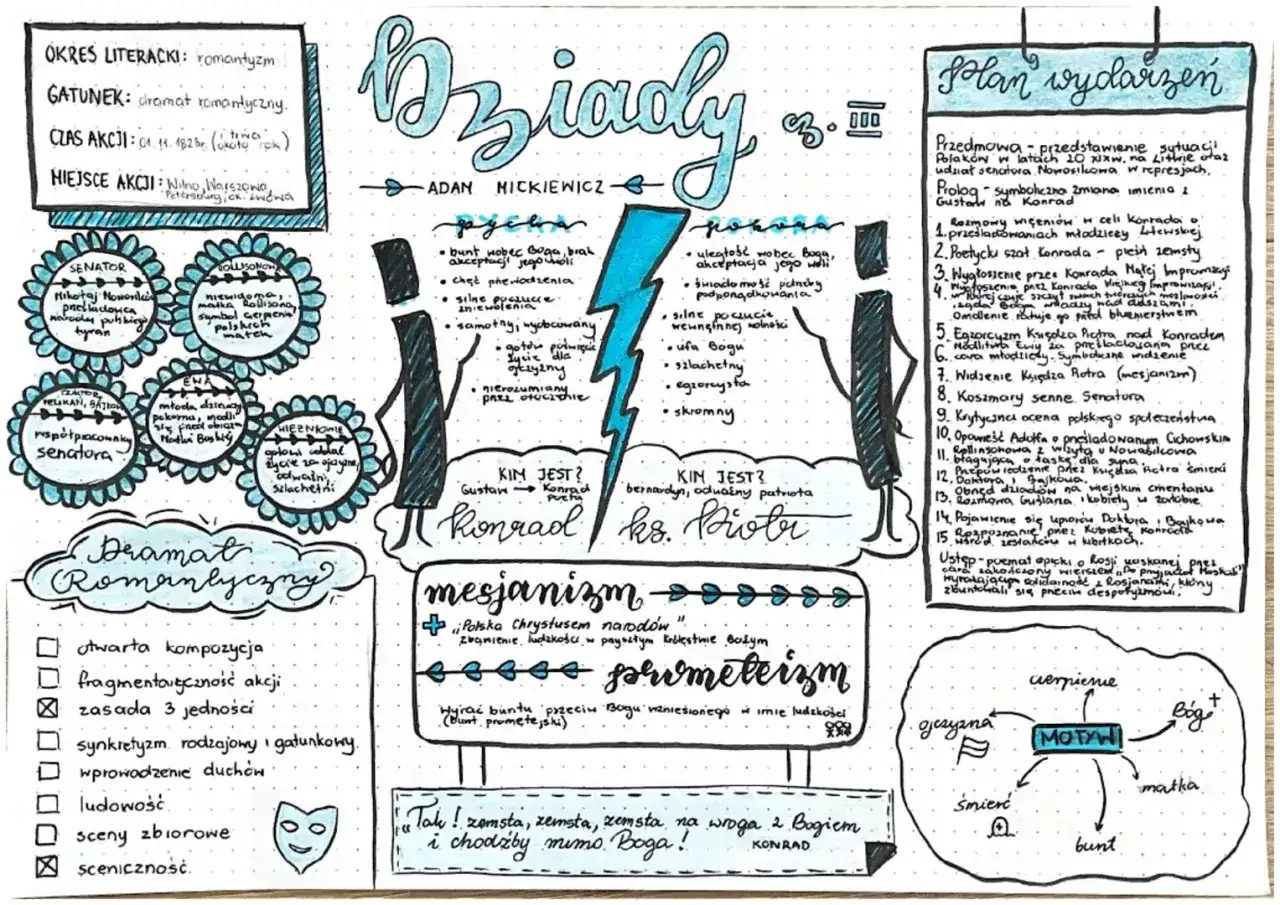 OKRES LITERACKI: romantyzm
GATUNEK: dramat romantyczny.
CZAS AKCJI: 01.11.1823r. (i trwa
około rok)
MIEJSCE AKCJI: Wilno, Warszawa
Petersburg, ok. Lwowa
Dziady
cz. III
ADAM MICKIEWICZ
SENATOR
Mikołaj Nowosilcow
prześladowca
narodu polskiego
tyran
ROLLISONOWA
niewidoma,
matka Rollisona,
symbol cierpienia
polskich
matek
PELIKAN, BAJKOW
współpracownicy
senatora
EWA
młoda dziewczyna
pokorna, modli
się przed obrazem
Matki Boskiej
WIĘŹNIOWIE
gotowi oddać
życie za ojczyznę,
odważni,
szlachetni
PYCHA
• bunt wobec Boga, brak
akceptacji jego woli
• chęć przewodzenia
• silne poczucie
zniewolenia
• samotny, wyobcowany
• gotów poświęcić
życie dla
ojczyzny
• nierozumiany
przez otoczenie
POKORA
• uległość wobec Boga,
akceptacja jego woli
• świadomość potrzeby
podporządkowania
• silne poczucie
wewnętrznej wolności
• ufa Bogu
• szlachetny
• egzorcysta
• skromny
KIM JEST?
Gustaw → Konrad
poeta
Konrad
KIM JEST?
bernardyn, odważny patriota
ks. Piotr
Dramat
Romantyczny
otwarta kompozycja
fragmentaryczność akcji
zasada 3 jedności
synkretyzm rodzajowy i gatunkowy.
wprowadzenie duchów
ludowość
sceny zbiorowe
sceniczność.
mesjanizm
"Polska Chrystusem narodów"
zbawienie ludzkości w przyszłym Królestwie Bożym
prometeizm
wyraz buntu przeciw Bogu wzniesionego w imię ludzkości
(bunt prometejski)
"Tak! zemsta, zemsta, zemsta na wroga z Bogiem
i chodźby mimo Boga!
KONRAD
Plan wydarzeń
Przedmowa - przedstawienie sytuacji
Polaków w latach 20 XIXw. na Litwie oraz
udział senatora Nowosilcowa w represjach.
Prolog - symboliczna zmiana imienia z
Gustaw na Konrad
Rozmowy więźniów w celi Konrada o
1. prześladowaniach młodzieży Litewskiej
2. Poetycki szał Konrada - pieśń zemsty
3. Wygłoszenie przez Konrada Małej Improwizacji
4. Wygłoszenie przez Konrada Wielkiej Improwizacji,
w której czuje szczyt swoich twórczych możliwości
i żąda Bogu władzy nad duszami.
Omdlenie ratuje go przed bluźnierstwem
5. Egzorcyzm Księdza Piotra nad Konradem
Modlitwa Ewy za prześladowaną przez
6. cara młodzież. Symboliczne widzenie
7. Widzenie Księdza Piotra (mesjanizm)
8. Koszmary senne Senatora
9. Krytyczna ocena polskiego społeczeństwa
10. Opowieść Adolfa o prześladowanym Cichowskim
11. Rollinsonowa z wizytą u Nowosilcowa
błagająca o łaskę dla syna
12. Przepowiedzenie przez Księdza Piotra śmierci
Doktora i Bajkowa.
Obrzęd dziadów na wiejskim cmentarzu
13. Rozmowa Guślarza i kobiety w żałobie.
14. Pojawienie się upiorów Doktora i Bajkowa
15. Rozpoznanie przez Kobietę Konrada
wśród zesłańców w kibitkach.
Ustęp - poemat epicki o Rosji uciskanej przez
cara zakończony wierszem "Do przyjaciół Moskali"
wyrażającym solidarność z Rosjanami, którzy
zbuntowali się przeciw despotyzmowi.
MOTYW
cierpienie
Bóg
ojczyzna
matka
śmierć
bunt